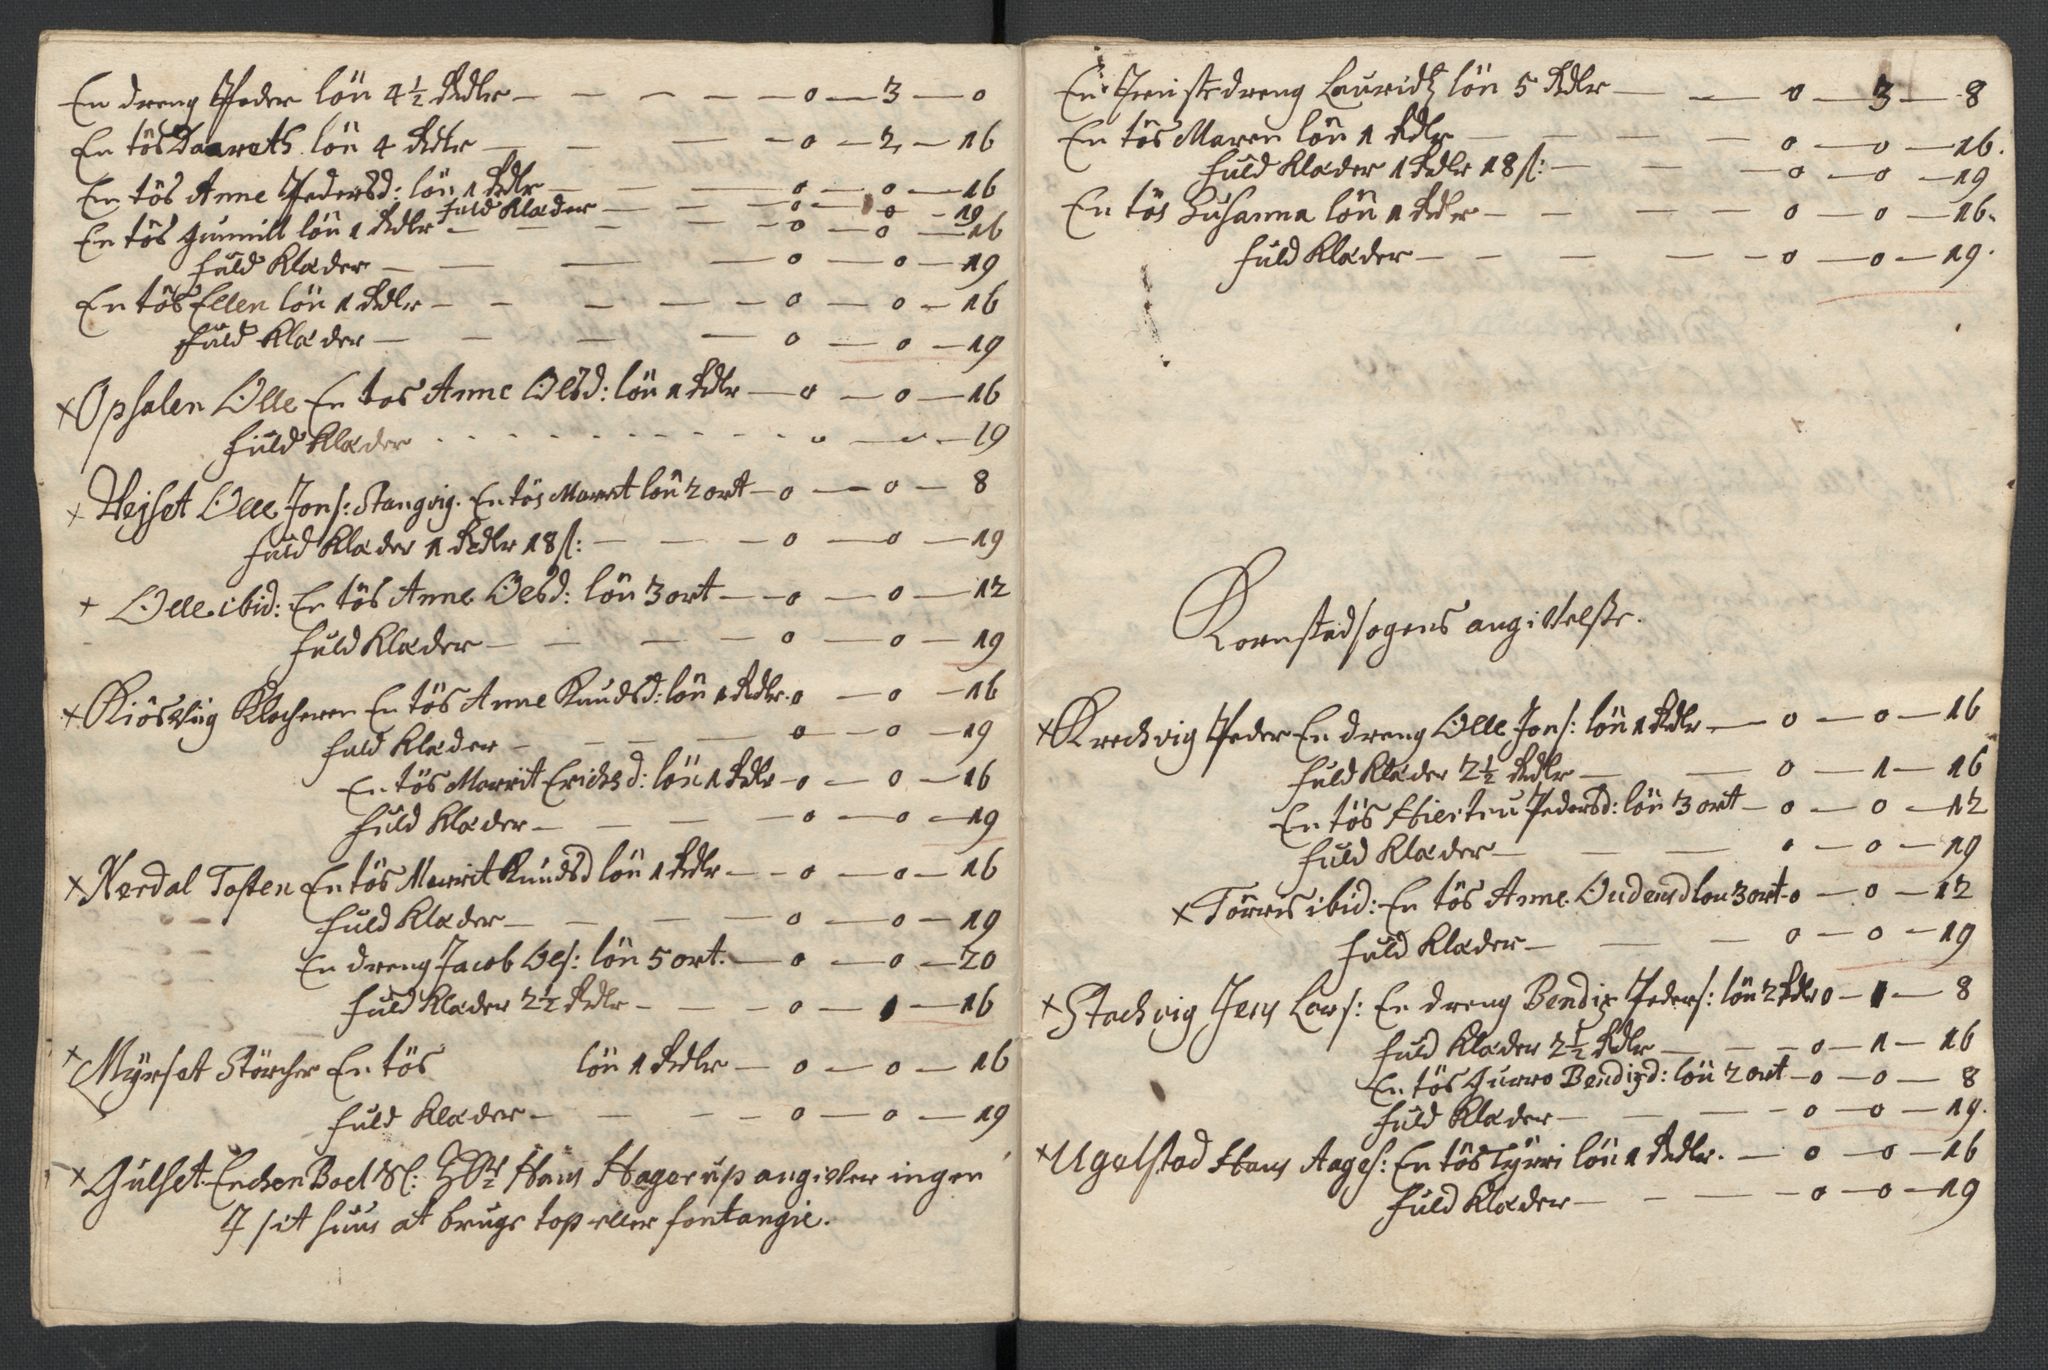 En dreng Peder lön 4½ Rdlr — — — — — 0 — 3 — 0
En tös Daareth lön 4 Rdlr — — — — 0 — 2 — 16
En tös Anne Pedersd: lön 1 Rdlr — — — 0 — 0 — 16
fuld Klæder — — — 0 — 0 — 19
En tös Gunnill lön 1 Rdlr — — — — 0 — 0 — 16
fuld Klæder — — — — 0 — 0 — 19
En tös Ellen lön 1 Rdlr — — — — — 0 — 0 — 16
fuld Klæder — — — — 0 — 0 — 19
× Opsalen Olle En tös Anne Olsd: lön 1 Rdlr — 0 — 0 — 16
fuld Klæder - - - - - - - - - 0 — — 19
× Vejset Olle Jons: Stangvig. En tös Marrit lön 2 ort — 0 — 0 — 8
fuld Klæder 1 Rdlr 18 ß: — — — 0 — 0 — 19
+ Olle ibid: En tös Anne Olsd: lön 3 ort — — 0 — 0 — 12
fuld Klæder — — — — 0 — 0 — 19
× Kiösvig Klocheren En tös Anne Knudsd: lön 1 Rdlr. 0 — 0 — 16
fuld Klæder — — — — 0 — 0 — 19
En tös Marrit Erichsd: lön 1 Rdlr — 0 — 0 — 16
fuld Klæder — — — — 0 — 0 — 19
× Nerdal Tosten En tös Marrit Knudsd lön 1 Rdlr — — 0 — 0 — 16
fuld Klæder — — — — 0 — 0 — 19
En dreng Jacob Ols: lön 5 ort. — 0 — 0 — 20
fuld Klæder 2½ Rdlr — — — 0 — 1 — 16
× Myrset Störcher En tös lön 1 Rdlr — 0 — 0 — 16
fuld Klæder — — — — 0 — 0 — 19
× Gulset Enchen Boel Sl: Hans Hagerup angiver ingen
J sit huus at bruge top eller fontangie.
En Tienistedreng Lauridtz lön 5 Rdlr — — 0 — 3 — 8
En tös Maren lön 1 Rdlr — — — — 0 — 0 — 16.
fuld Klæder 1 Rdlr 18 ß: — — — 0 — 0 — 19
En tös Susanna lön 1 Rdlr — — — — 0 — 0 — 16.
fuld Klæder — — — — — 0 — 0 — 19.
Kornstadsogens angivelsse.
× Krechvig Peder En dreng Olle Jons: lön 1 Rdlr — 0 — 0 — 16
fuld Klæder 2½ Rdlr — — 0 — 1 — 16
En tös Hiertru Pedersd: lön 3 ort — 0 — 0 — 12
fuld Klæder — — — 0 — 0 — 19
× Törris ibid: En tös Anne Oudensd lön 3 ort. 0 — 0 — 12
fuld Klæder — — — 0 — 0 — 19
× Stachvig Jens Lars: En dreng Bendix Peders: lön 2 Rdlr 0 — 1 — 8
fuld Klæder 2½ Rdlr — — — 0 — 1 — 16
En tös Gurro Bendixd: lön 2 ort — 0 — 0 — 8
fuld Klæder — — — — 0 — 0 — 19.
× Ugelstad Hans Aages: En tös Tyrri lön 1 Rdlr. — 0 — 0 — 16
fuld Klæder — — — — 0 — 0 — 19